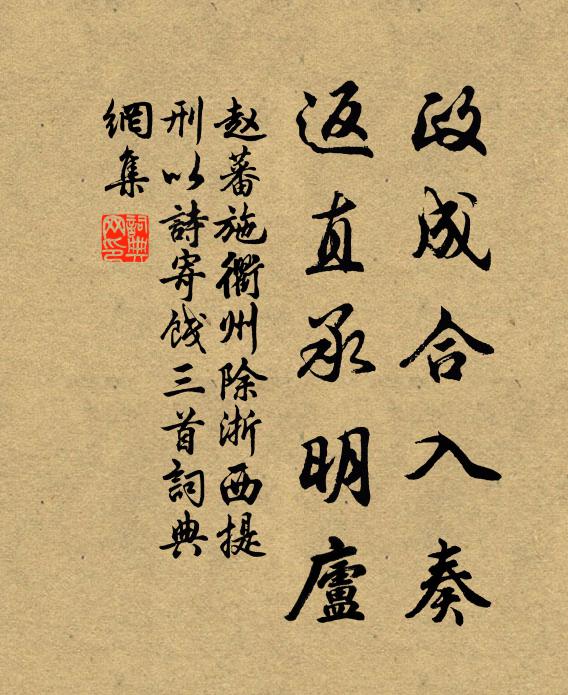 政成合入奏
返直承明廬
赵蕃施衢州除浙西提
刑以詩寄餞三首詞典
網集
詞典
网印